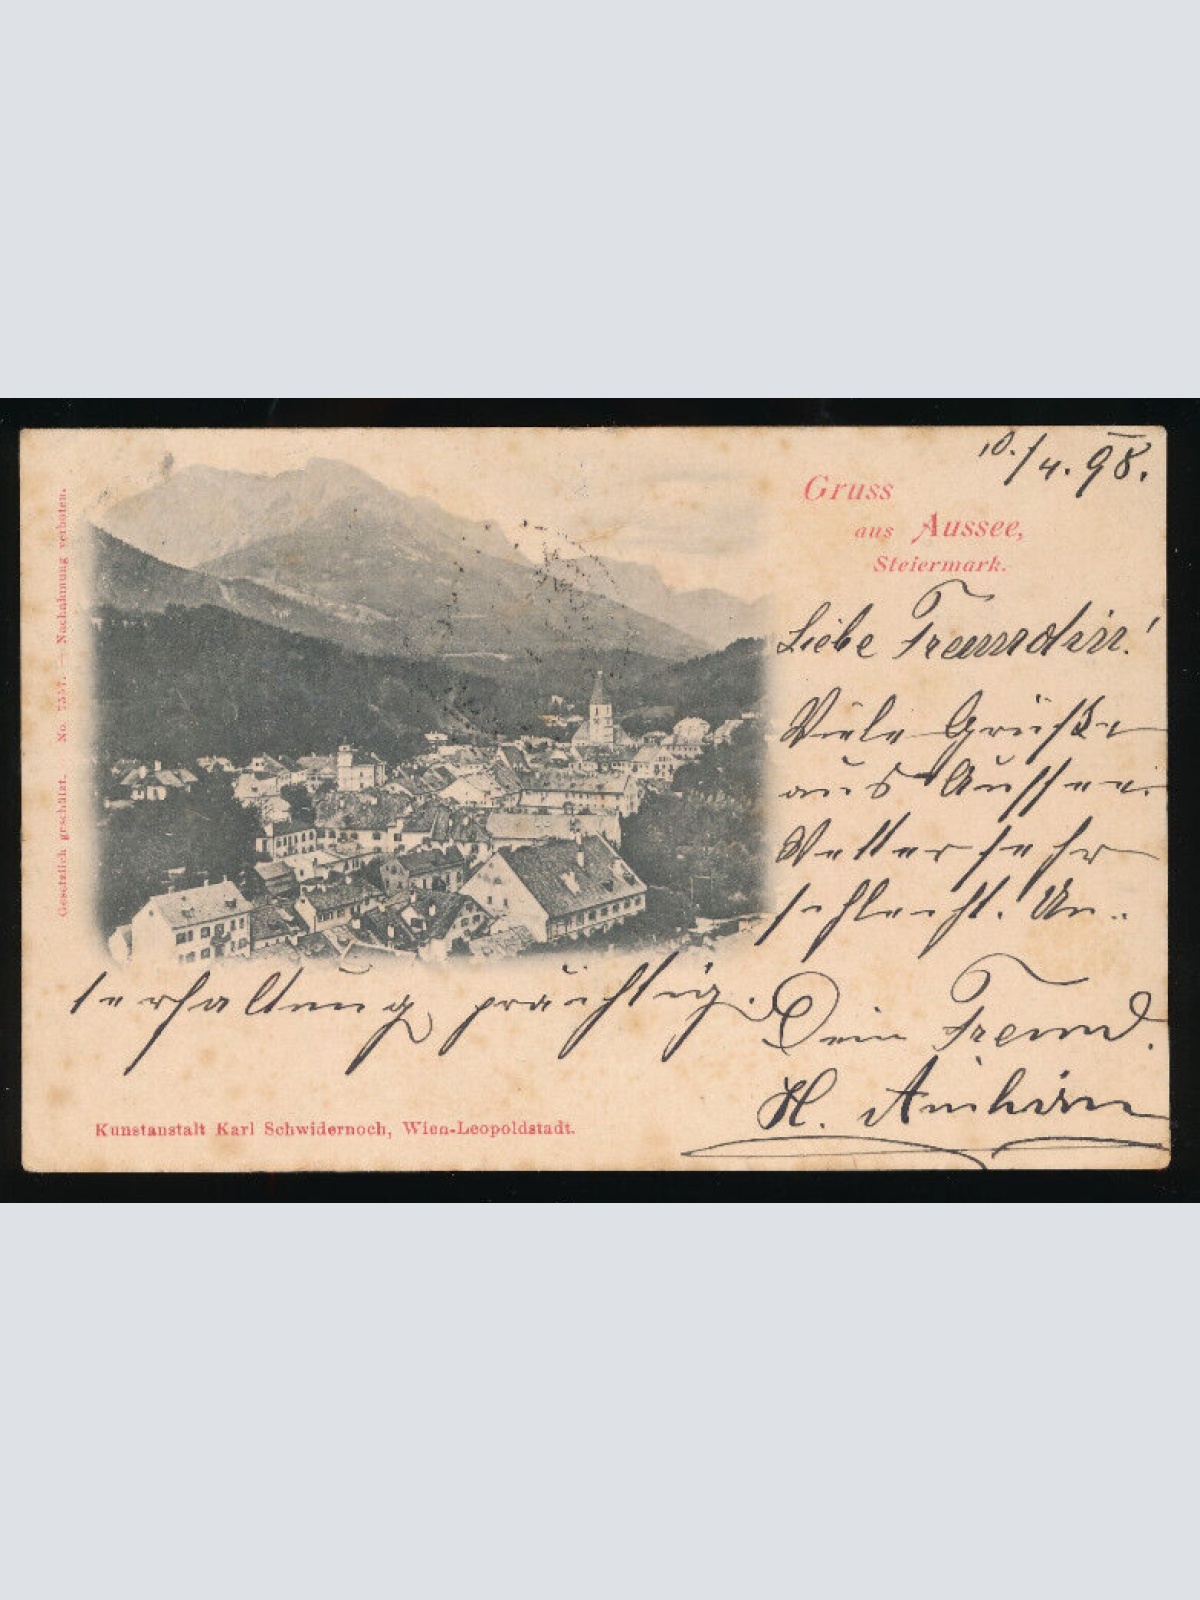 10./4. 98.
Gruss
aus Aussee,
Steiermark.
Liebe Freundin!
Viele Grüße
aus Aussee.
Wetter sehr
schlecht. Un-
terhaltung prächtig.
Dein Freund.
H.
Kunstanstalt Karl Schwidernoch, Wien-Leopoldstadt.
Gesetzlich geschützt. No. 7357. — Nachahmung verboten.